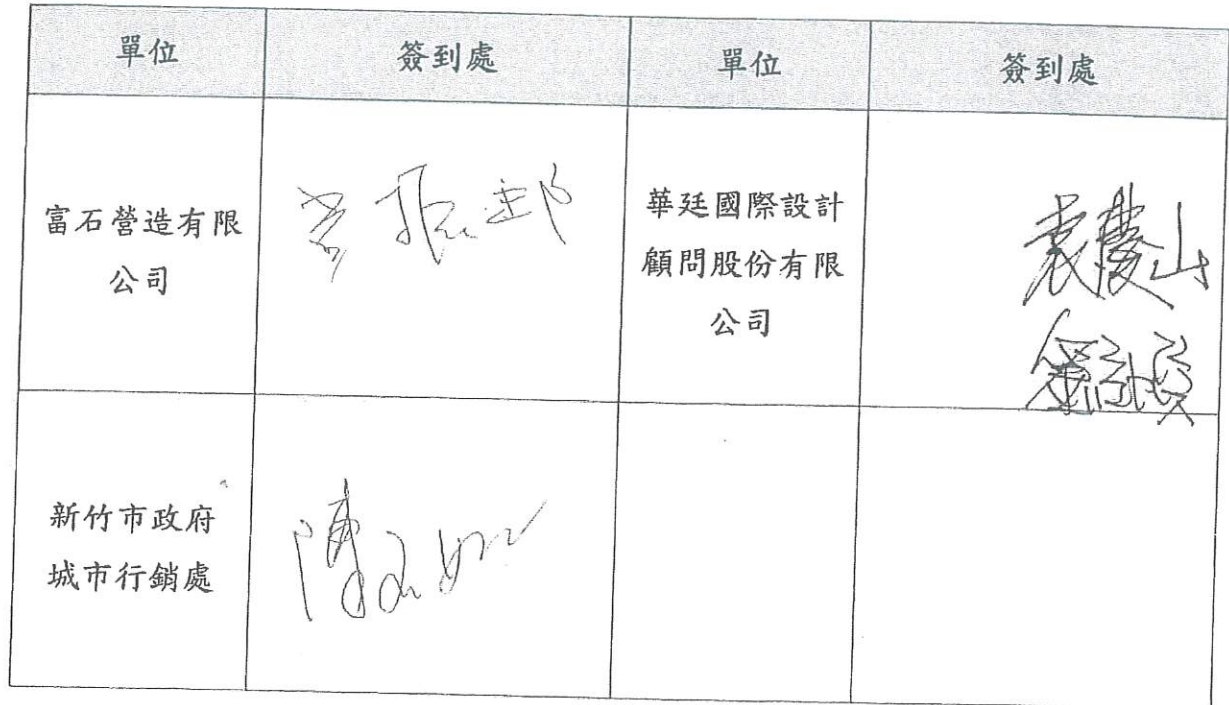 單位 簽到處 單位 簽到處
富石營造有限
公司
華廷國際設計
顧問股份有限
公司
袁慶山
新竹市政府
城市行銷處